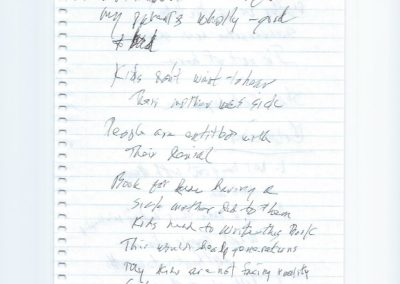 my parents wholly - good
& bad
Kids don't want to hear
Their mother was sick
People are entitled with
Their denial
Book for
having a
sick mother did to them
Kids need to write this Book
This would help generations
my kids are not facing reality